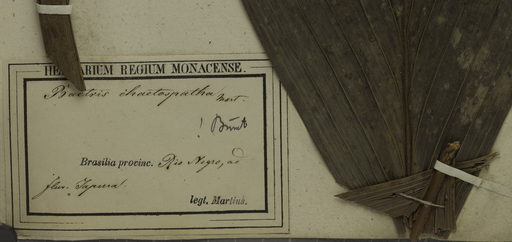 HERBARIUM REGIUM MONACENSE.
Bactris chaetospatha Mart.
!
Brasilia provinc. Rio Negro, ad
fluv. Japura
legt. Martius.